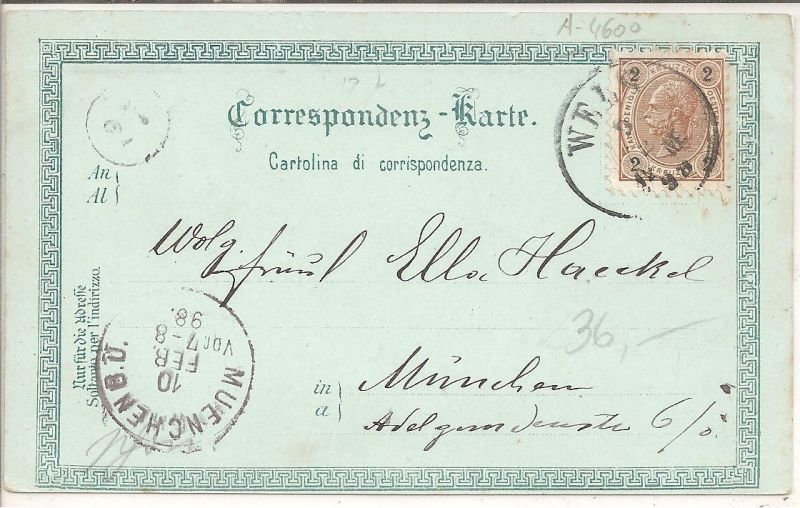 A-4600
2 KREUZER 2
WELS
Correspondenz-Karte.
Cartolina di corrispondenza.
27
An
Al
Wolg.
Fräul Ella Haeckel
36,—
in München
a
Nur für die Adresse
Soltanto per l'indirizzo.
MUENCHEN B.Ü.
10
FEB.
Vor 7-8
98.